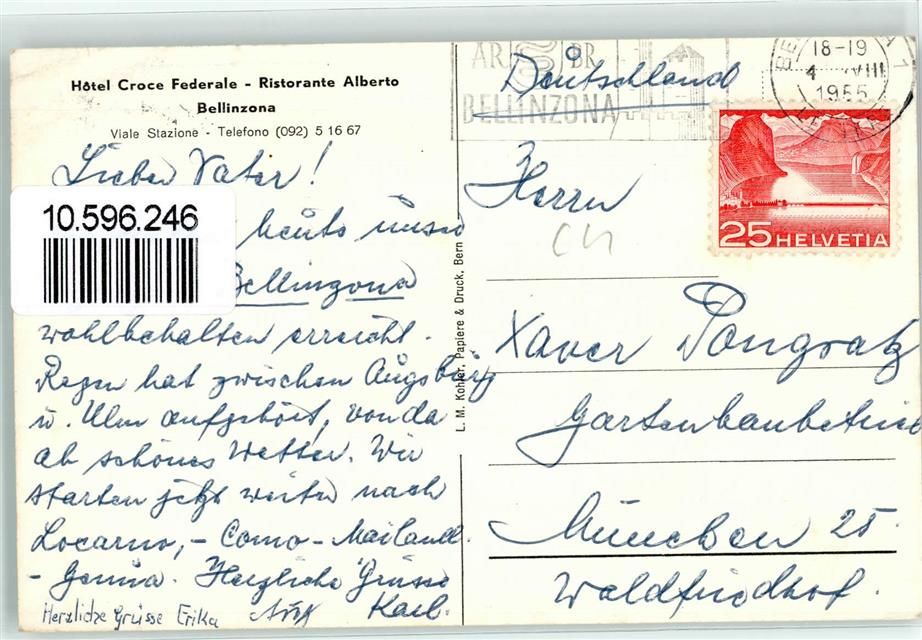 Hôtel Croce Federale - Ristorante Alberto
Bellinzona
Viale Stazione - Telefono (092) 5 16 67
Lieber Vater!
10.596.246
heute unser
Bellinzona
wohlbehalten erreicht.
Regen hat zwischen Augsburg
u. Ulm aufgehört, von da
ab schönes Wetter. Wir
starten jetzt weiter nach
Locarno, - Como - Mailand
- Genua. Herzliche Grüsse
Karl.
Herzliche Grüsse Erika
L. M. Kohler, Papiere & Druck, Bern
BELLINZONA
18-19
4 VIII
1955
25 HELVETIA
Deutschland
Herrn
Xaver Pongratz
Gartenbaubetrieb
München 25
Waldfriedhof.